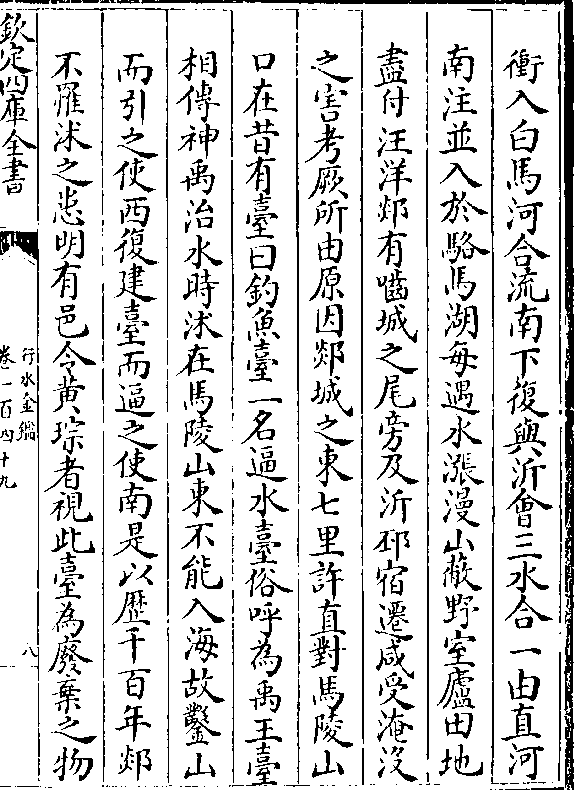 衝入白馬河合流南下復與沂會三水合一由直河
南注並入於駱馬湖每遇水漲漫山蔽野室廬田地
盡付汪洋郯有嚙城之尾旁及沂邳宿遷咸受淹沒
之害考厥所由原因郯城之東七里許直對馬陵山
口在昔有臺曰釣魚臺一名逼水臺俗呼為禹王臺
相傳神禹治水時沭在馬陵山東不能入海故鑿山
而引之使西復建臺而逼之使南是以歴千百年郯
不罹沭之患明有邑令黄琮者視此臺為廢棄之物
欽定四庫全書
行水金鑑
卷一百四十九
八